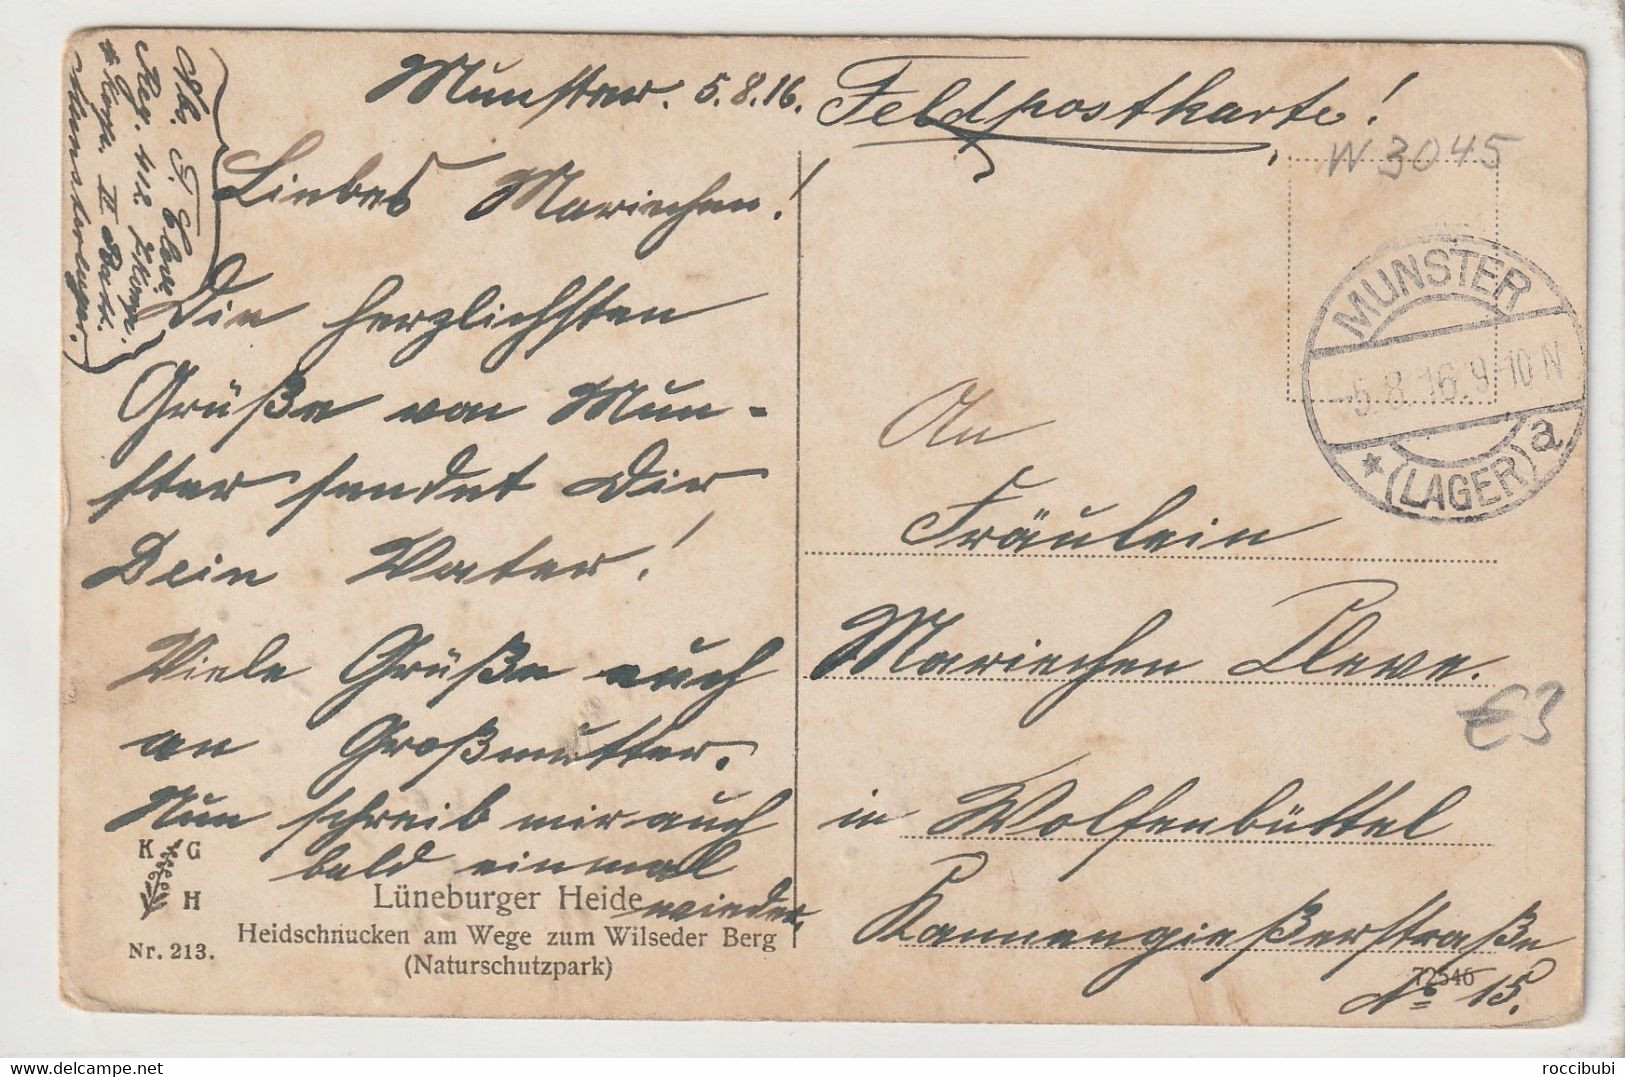 Munster. 5.8.16.
Feldpostkarte!
W 3045
Liebes Mariechen!
Die herzlichsten
Grüße von Mun-
ster sendet Dir
Dein Vater!
Viele Grüße auch
an Großmutter.
Nun schreib mir auch
bald einmal
wieder.
Abs. Cleve
Reg.
II
Munsterlager.
MUNSTER
-5.8.16.9-10N
*(LAGER)a
An
Fräulein
Mariechen Cleve.
in Wolfenbüttel
Kannengießerstraße
No 15.
€3
K G
H
Nr. 213.
Lüneburger Heide
Heidschnucken am Wege zum Wilseder Berg
(Naturschutzpark)
72546
delcampe.net
roccibubi